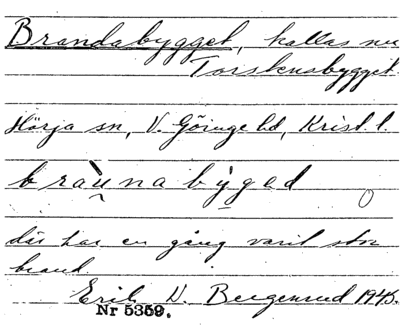 Brandabygget, kallas nu
Torskensbygget.
Hörja sn, V. Göinge hd, Krist. l.
braunabyged
där har en gång varit stor
brand
Erik N. Bergenrud 1945.
Nr 5359.